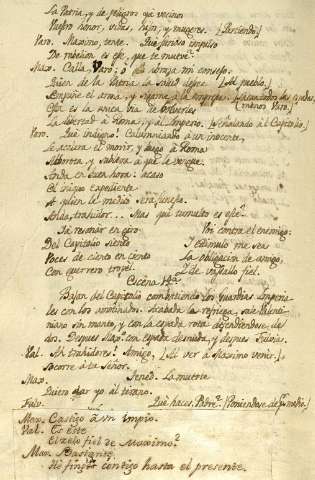 La Patria, y de peligros ya vecinos
Vuestro honor, vidas, hijos, y mugeres. (Partiendo)
Varo. Maximo, tente. Que furioso impulso
De rebelion es este, que te mueve?
Max. Calla, Varo; ó abraza mi consejo.
Quien de la Patria la salud desee (Al pueblo.)
Empuñe el arma, y
Esta es la unica via de
La libertad á Roma, y al Imperio. (Señalando al Capitolio.)
Varo. Que indigno! Calumniando á un inocente,
Le acelera el morir, y luego á Roma
Alborota, y subleva á que le vengue.
Anda en buen hora: acaso
El impio expediente
A quien le medita será funesto.
Anda, traidor... Mas que tumulto es este?
Ya resonar en giro
Del Capitolio siento
Voces de ciento en ciento
Con guerrero tropel.
Voi contra el enemigo:
Y estimulo me sea
La obligacion de amigo,
I de vasallo fiel.
Escena 12ª
Bajan del Capitolio combatiendo los Guardias Imperia-
les con los amotinados. Acabada la refriega, sale Valenti-
niano sin manto, y con la espada rota defendiendose de
dos. Despues Maxº. con espada desnuda, y despues Fulvia.
Val. Ah traidores! Amigo, (Al ver á Maximo venir.)
Socorre á tu Señor.
Max. Tened. La muerte
Quiero dar yo al tirano.
Fulv. Qué haces, Padre? (Poniendose de por medio.)
Max. Castigo á un impio.
Val. Es este
El zelo fiel de Maximo?
Max. Bastante
He fingido contigo hasta el presente.